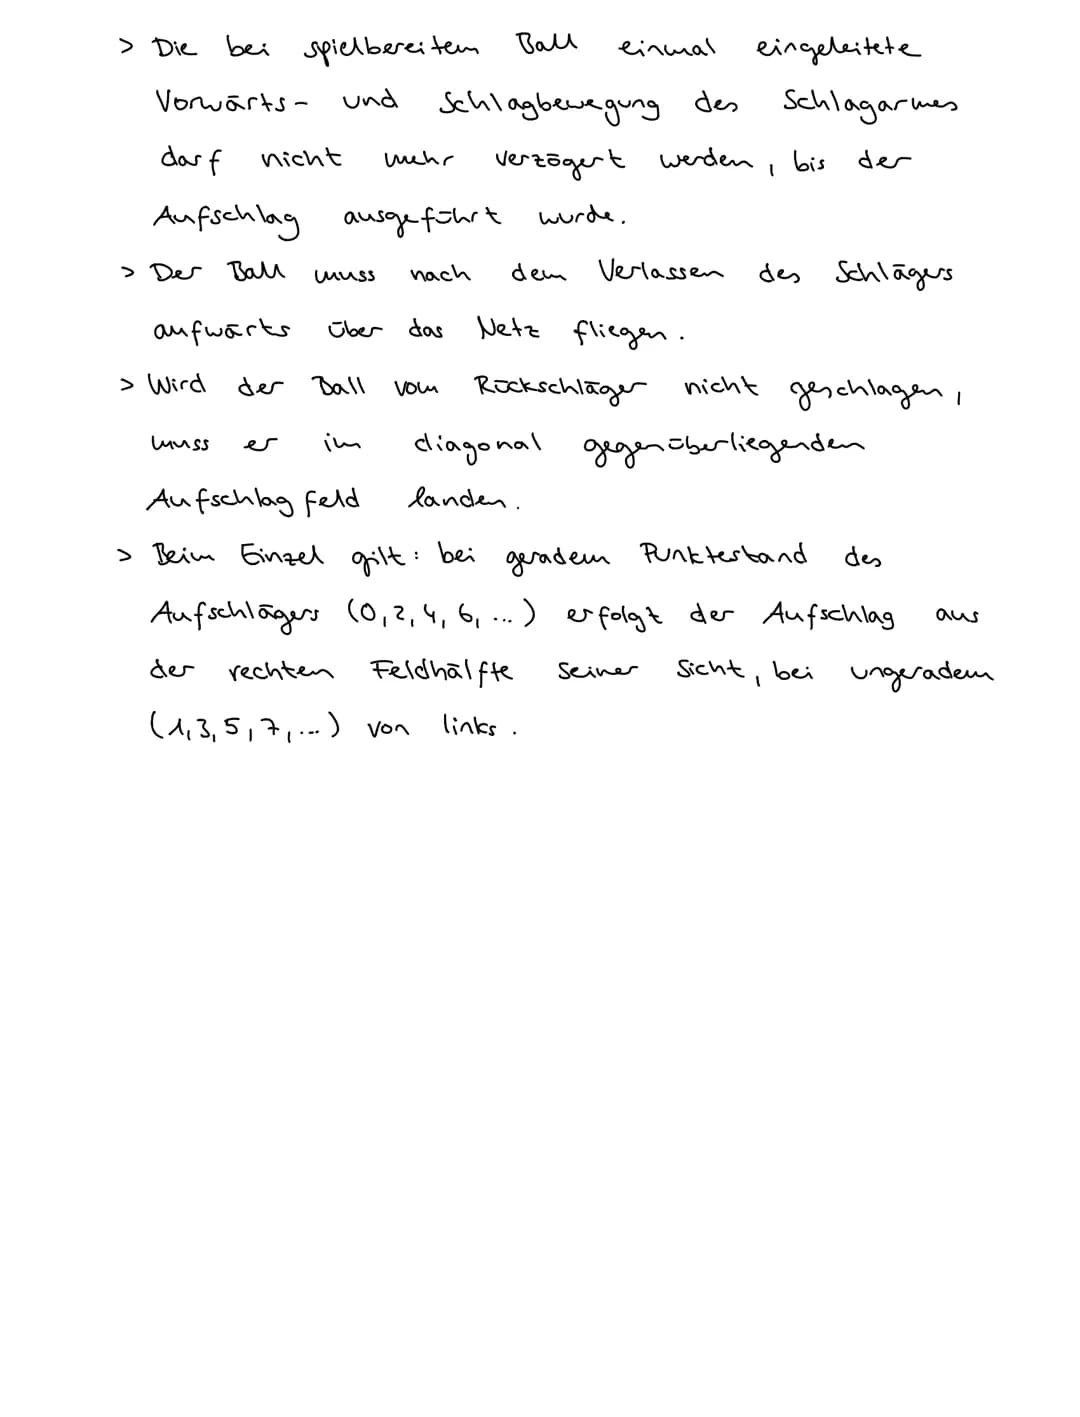 > Die bei spielbereitem Ball einmal eingeleitete
Vorwärts- und Schlagbewegung des Schlagarmes
darf nicht mehr verzögert werden, bis der
Aufschlag ausgeführt wurde.
> Der Ball muss nach dem Verlassen des Schlägers
aufwärts über das Netz fliegen.
> Wird der Ball vom Rückschläger nicht geschlagen,
muss er im diagonal gegenüberliegenden
Aufschlagfeld landen.
> Beim Einzel gilt: bei geradem Punktestand des
Aufschlägers (0,2,4,6,...) erfolgt der Aufschlag aus
der rechten Feldhälfte seiner Sicht, bei ungeradem
(1,3,5,7,...) von links.